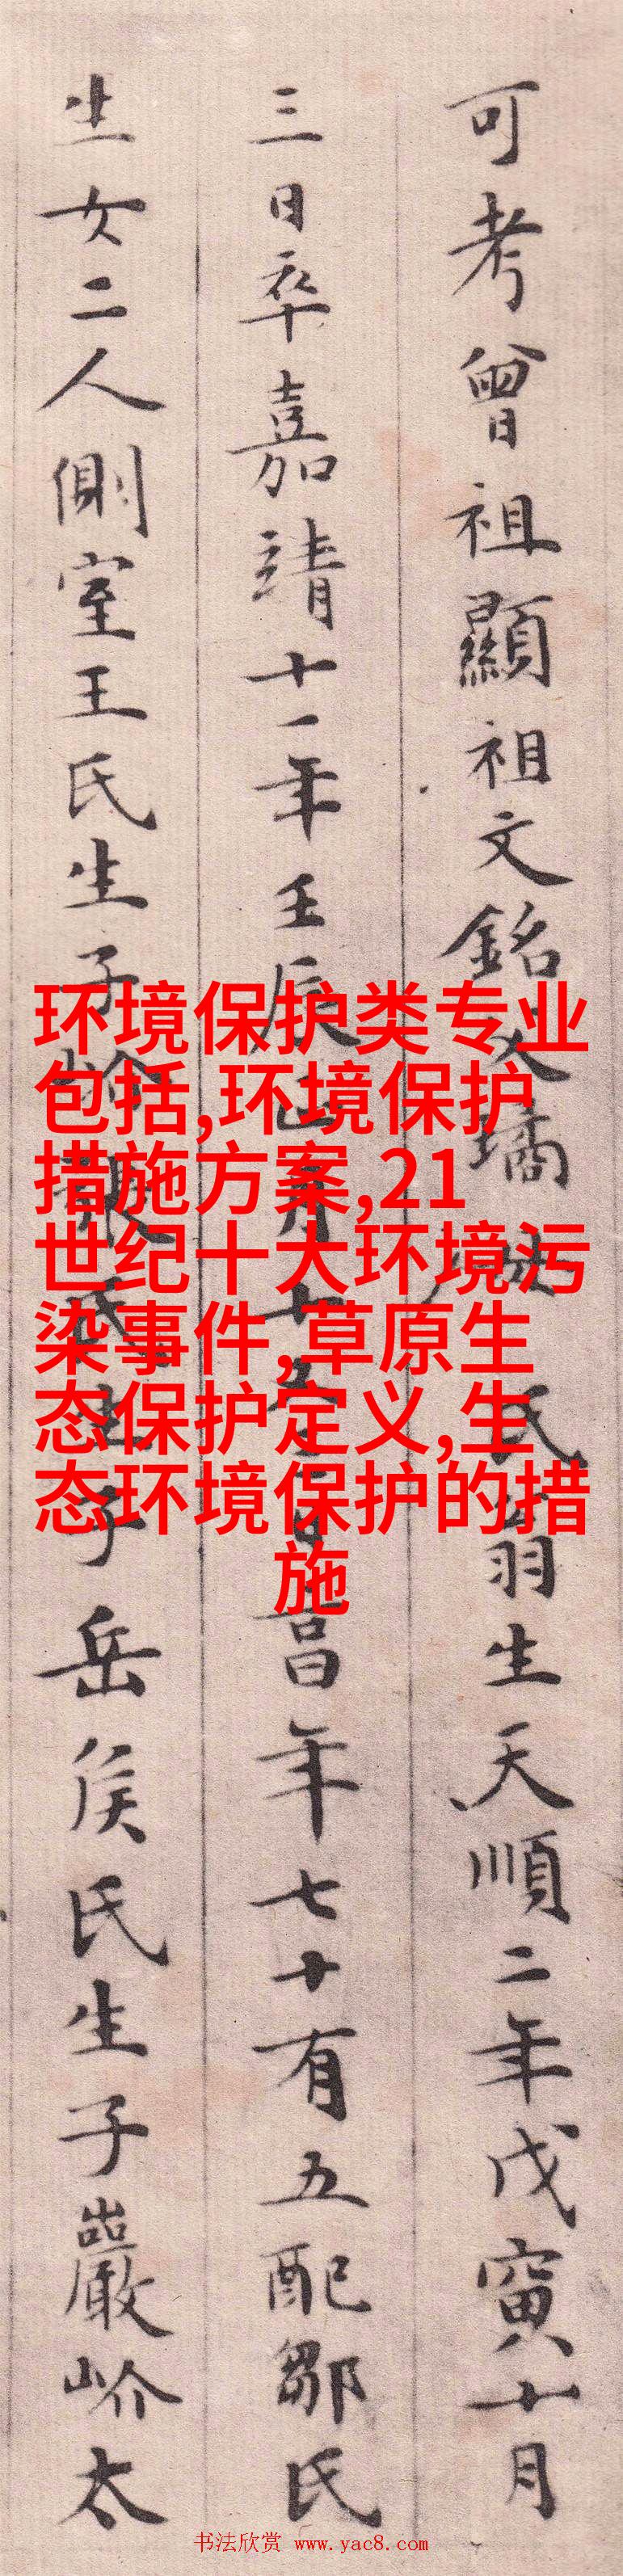 可考曾祖顯祖文銘父璚 氏翁生天順二年戊寅十月
三日卒嘉靖十一年壬辰正月十五日享年七十有五配鄒氏
生女二人側室王氏生子 氏生子岳侯氏生子巖岕太
环境保护类专业
包括,环境保护
措施方案,21
世纪十大环境污
染事件,草原生
态保护定义,生
态环境保护的措
施
书法欣赏 www.yac8.com